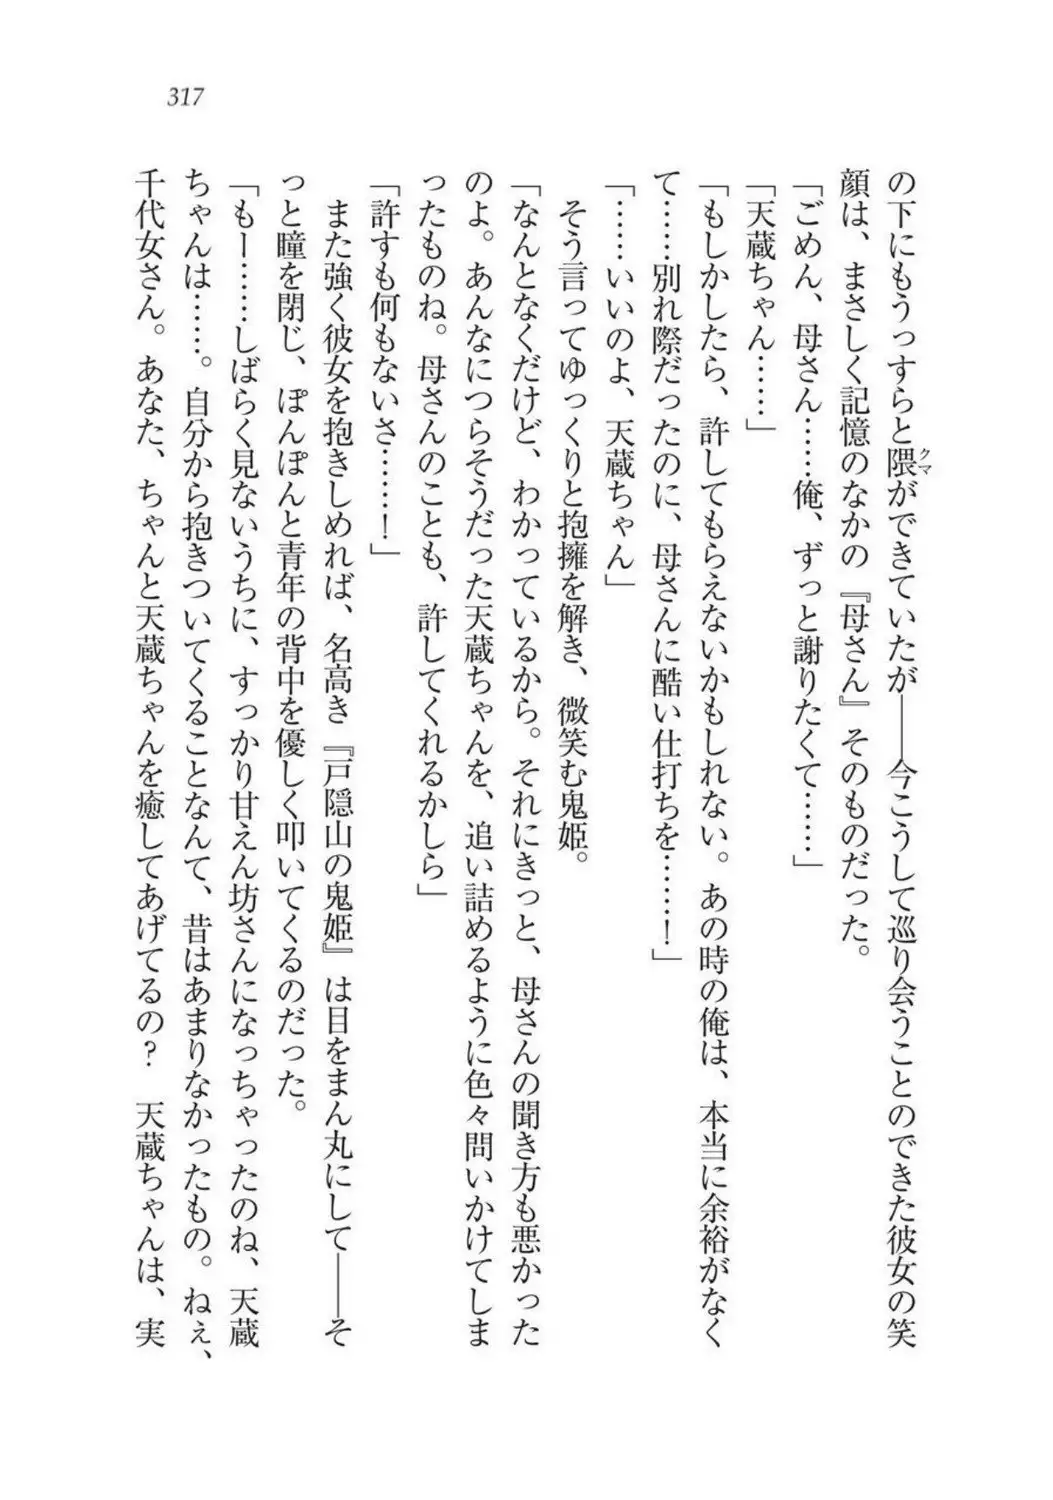 317
の下にもうっすらと隈ができていたが――今こうして巡り会うことのできた彼女の笑
クマ
顔は、まさしく記憶のなかの『母さん』そのものだった。
「ごめん、母さん……俺、ずっと謝りたくて……」
「天蔵ちゃん……」
「もしかしたら、許してもらえないかもしれない。あの時の俺は、本当に余裕がなく
て……別れ際だったのに、母さんに酷い仕打ちを……！」
「……いいのよ、天蔵ちゃん」
　そう言ってゆっくりと抱擁を解き、微笑む鬼姫。
「なんとなくだけど、わかっているから。それにきっと、母さんの聞き方も悪かった
のよ。あんなにつらそうだった天蔵ちゃんを、追い詰めるように色々問いかけてしま
ったものね。母さんのことも、許してくれるかしら」
「許すも何もないさ……！」
　また強く彼女を抱きしめれば、名高き『戸隠山の鬼姫』は目をまん丸にして――そ
っと瞳を閉じ、ぽんぽんと青年の背中を優しく叩いてくるのだった。
「もー……しばらく見ないうちに、すっかり甘えん坊さんになっちゃったのね、天蔵
ちゃんは……。自分から抱きついてくることなんて、昔はあまりなかったもの。ねぇ、
千代女さん。あなた、ちゃんと天蔵ちゃんを癒してあげてるの？　天蔵ちゃんは、実